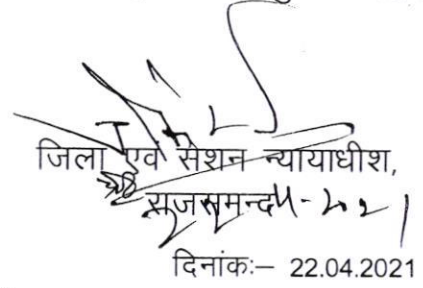 जिला एवं सेशन न्यायाधीश,
राजसमन्द
दिनांक:– 22.04.2021